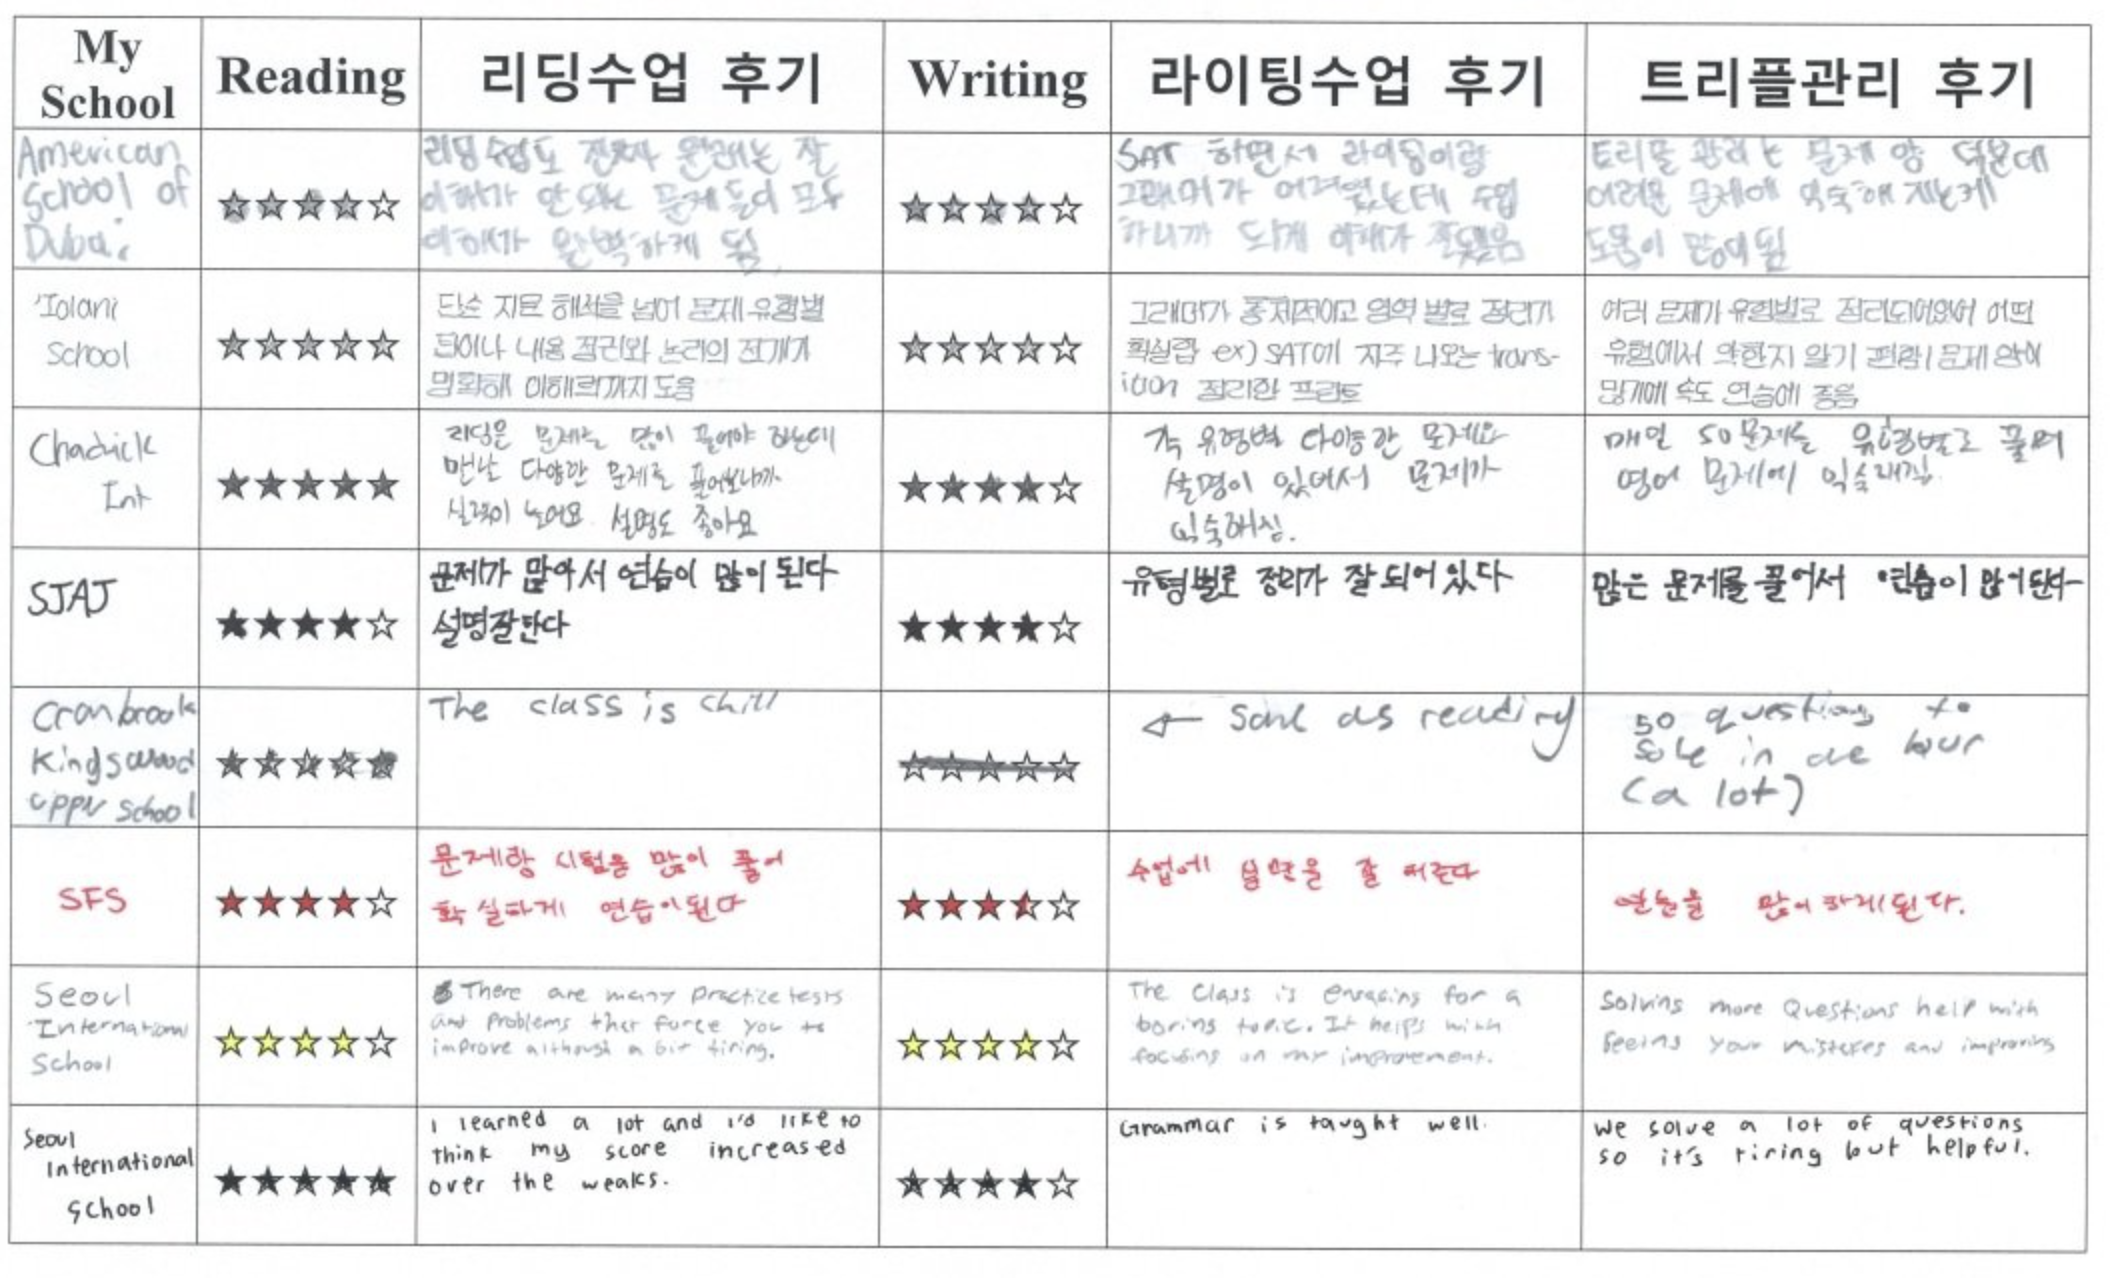 My School
Reading
리딩수업 후기
Writing
라이팅수업 후기
트리플관리 후기
American School of Dubai
★★★★☆
리딩 수업도 진짜 원래는 잘
이해가 안 되는 문제들이 모두
이해가 완벽하게 됨
★★★★☆
SAT 하면서 라이팅이랑
그래머가 어려웠는데 수업
하니까 되게 이해가 잘됐음
트리플 관리는 문제 양 덕분에
어려운 문제에 익숙해 지는게
도움이 많이 됨
'Iolani School
★★★★★
단순 지문 해석을 넘어 문제 유형별
내용 정리와 논리의 전개가
명확해 이해력까지 도움
★★★★★
그래머가 총체적이고 영역 별로 정리가
확실함 ex) SAT에 자주 나오는 trans-
ition 정리한 프린트
여러 문제가 유형별로 정리되어있어 어떤
유형에서 약한지 알기 편함 / 문제 양이
많기에 속도 연습에 좋음
Chadwick Int
★★★★★
리딩은 문제를 많이 풀어야 하는데
맨날 다양한 문제를 풀어보니까
실력이 늘어요 설명도 좋아요
★★★★☆
각 유형별 다양한 문제와
설명이 있어서 문제가
익숙해짐.
매일 50문제를 유형별로 풀며
영어 문제에 익숙해짐.
SJAJ
★★★★☆
문제가 많아서 연습이 많이 된다
설명잘한다
★★★★☆
유형별로 정리가 잘 되어 있다
많은 문제를 풀어서 연습이 많이 된다
Cranbrook
Kingswood
upper School
★★★★★
The class is chill
☆☆☆☆☆
← Same as reading
50 questions to
solve in one hour
(a lot)
SFS
★★★★☆
문제랑 시험을 많이 풀어
확실하게 연습이 된다
수업에 설명을 잘 해준다
연습을 많이 하게 된다.
Seoul
International
School
★★★★☆
There are many practice tests
and problems that force you to
improve although a bit tiring.
★★★★☆
The class is engaging for a
boring topic. It helps with
focusing on my improvement.
Solving more Questions help with
seeing your mistakes and improving
Seoul
International
School
★★★★★
I learned a lot and I'd like to
think my score increased
over the weaks.
★★★★☆
Grammar is taught well.
We solve a lot of questions
so it's tiring but helpful.